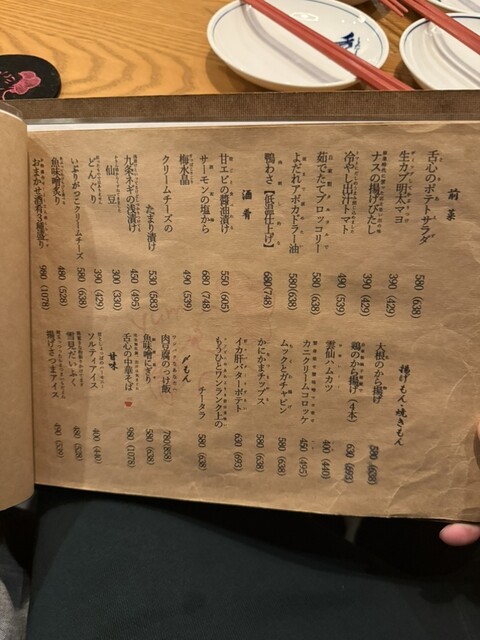 前菜
舌心のポテトサラダ 580 (638)
生カブ明太マヨ 390 (429)
ナスの揚げびたし 390 (429)
冷やし出汁トマト 490 (539)
茹でたてブロッコリー 580 (638)
よだれアボカドラー油 580 (638)
鴨わさ【低温仕上げ】 680 (748)
酒肴
甘エビの醤油漬け 550 (605)
サーモンの塩から 680 (748)
梅水晶 490 (539)
クリームチーズの
たまり漬け 530 (583)
九条ネギの浅漬け 450 (495)
仙豆 300 (330)
どんぐり 390 (429)
いぶりがっこクリームチーズ 580 (638)
魚味噌炙り 480 (528)
おまかせ酒肴3種盛り 980 (1078)
揚げもん・焼きもん
大根のから揚げ 580 (638)
鶏のから揚げ(4本) 630 (693)
雲仙ハムカツ 400 (440)
カニクリームコロッケ 450 (495)
ムックとガチャピン 580 (638)
かにかまチップス 580 (638)
イカ肝バターポテト 630 (693)
もうひとワンランク上の
チータラ 580 (638)
〆もん
肉汁腐のっけ飯 780 (858)
魚味噌にぎり 580 (638)
舌心の中華そば 980 (1078)
甘味
ソルティアイス 400 (440)
雪見だいふく 480 (528)
揚げさつまアイス 490 (539)